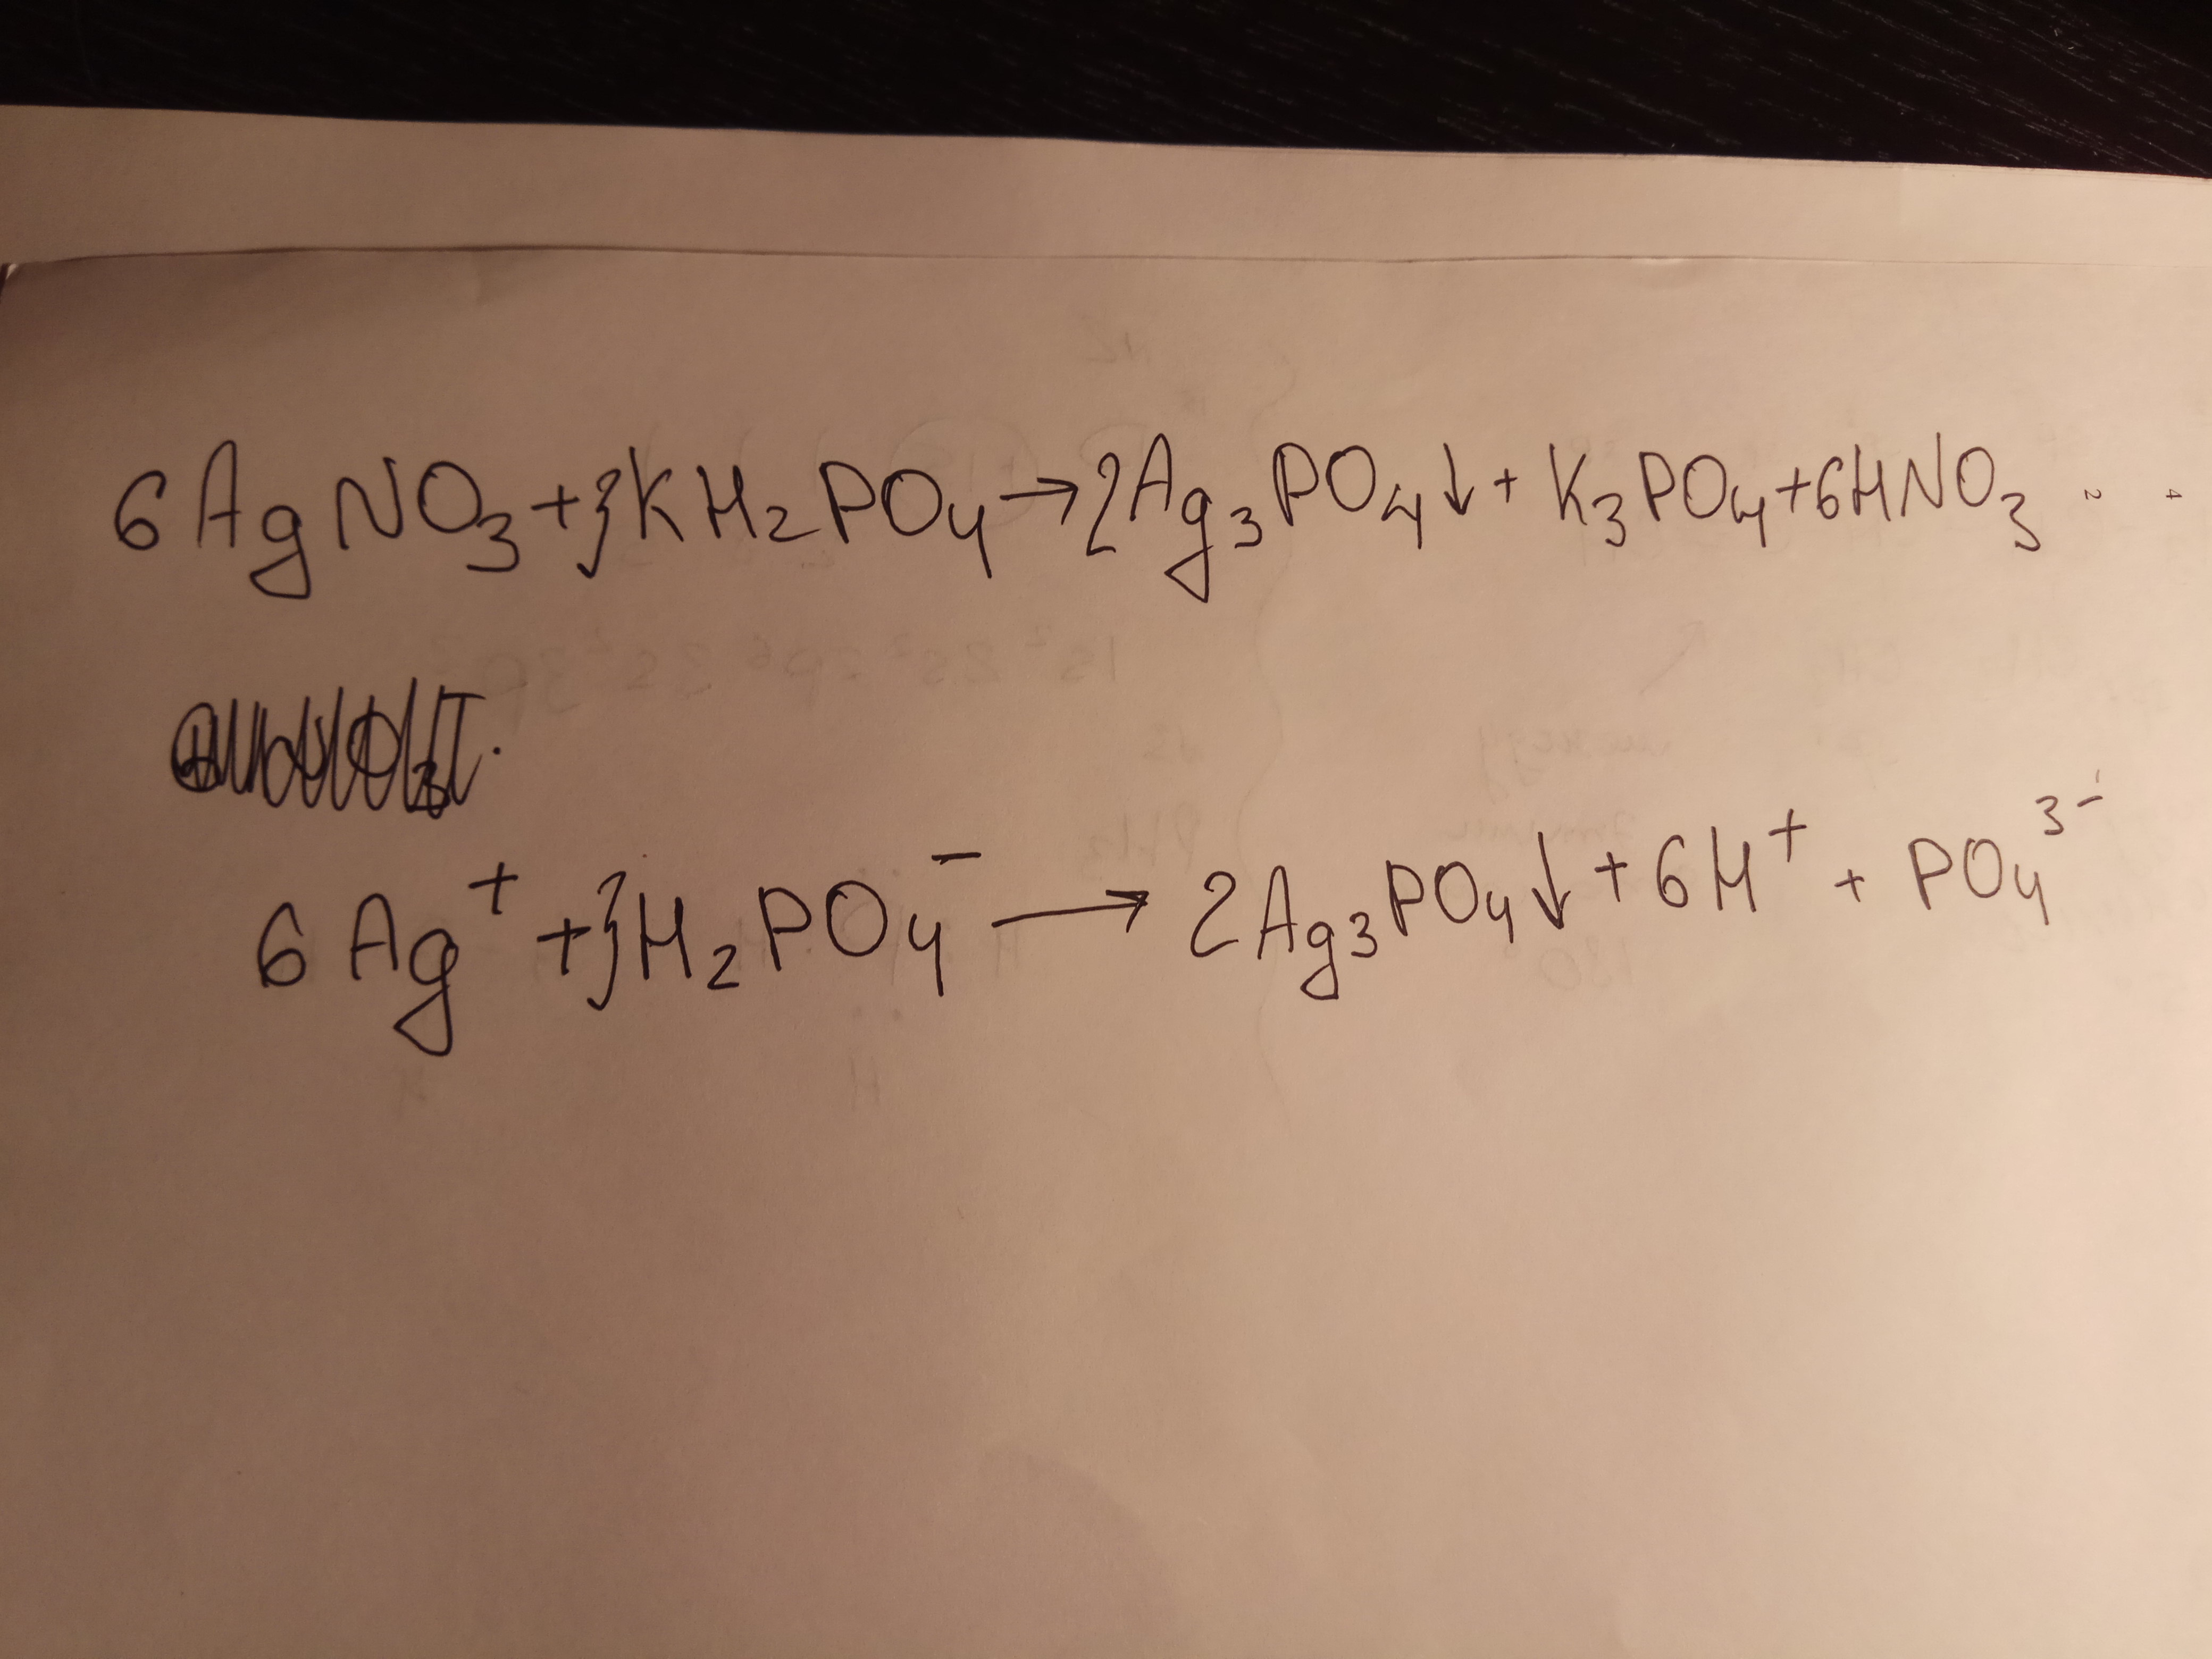 6AgNO₃+3KH₂PO₄→2Ag₃PO₄↓+K₃PO₄+6HNO₃
6Ag⁺+3H₂PO₄⁻→2Ag₃PO₄↓+6H⁺+PO₄³⁻